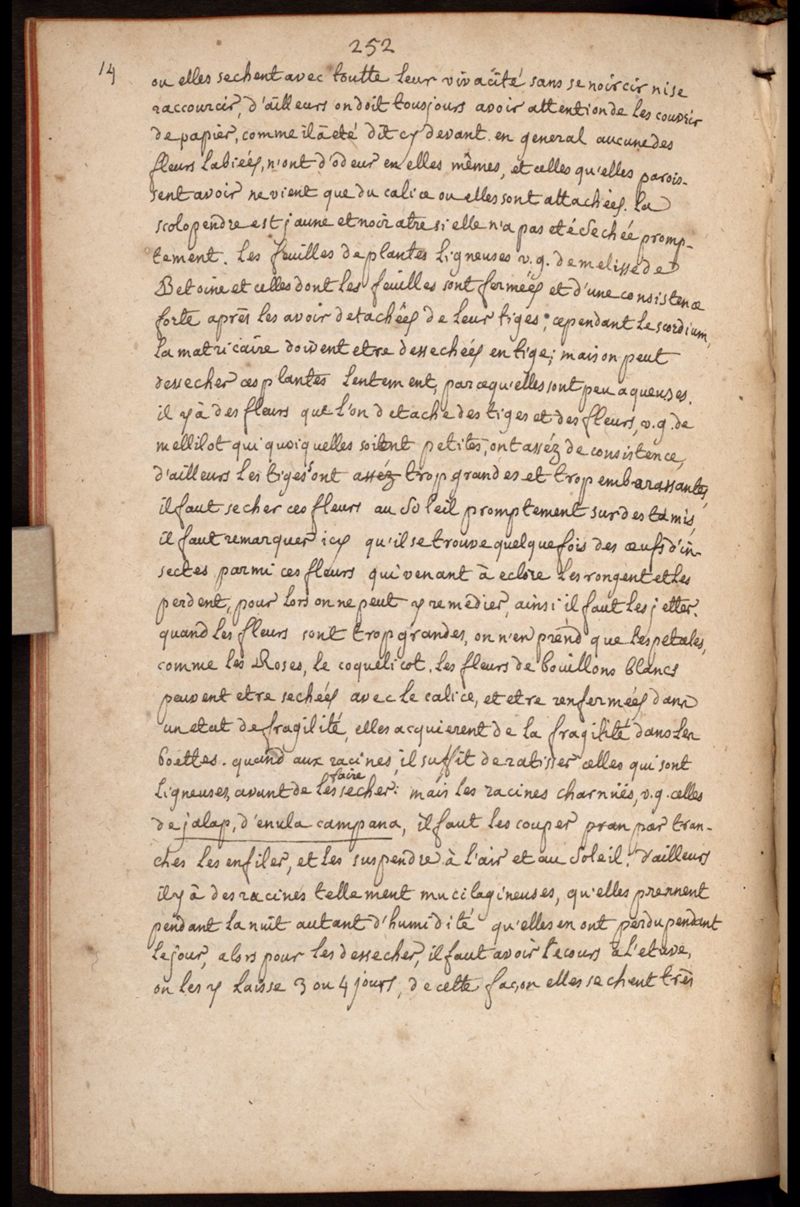 252
14
ou elles sechent avec toutte leur vivacité sans se noircir ni se
raccourcir, d'ailleurs on doit tousjours avoir attention de les couvrir
de papier, comme il à eté dit cy devant. en general aucune des
fleurs labiées, n'ont d'odeur en elles mêmes, et celles qu'elles parois-
sent avoir ne vient que du calice ou elles sont attachées. la
scolopendre est jaune et noiratre si elle n'a pas eté sechée promp-
tement. les feuilles de plantes ligneuses v.g. de melisse de
Betoine et celles dont les feuilles sont fermées et d'une consistence
forte après les avoir detachées de leur tiges; cependant le scordium,
la matricaire doivent etre dessechées en tige; mais on peut
dessecher ces plantes lentement, parcequ'elles sont peu aqueuses.
il y à des fleurs que l'on detache des tiges et des fleurs, v.g. de
mellilot qui quoiquelles soient petites, ont asséz de consistence,
d'ailleurs les tiges sont asséz trop grandes et trop embarassantes,
il faut secher ces fleurs au Soleil promptement sur des tamis
il faut remarquer icy qu'il se trouve quelque fois des œufs d'in-
sectes parmi ces fleurs qui venant à eclore les rongent et les
perdent, pour lors on ne peut y remedier, ainsi il faut les jetter.
quand les fleurs sont trop grandes, on n'en prend que les petales,
comme les Roses, le coquelicot. les fleurs de bouillons blancs
peuvent etre sechées avec le calice, et etre renfermées dans
un etat de fragilité, elles acquierent de la fragilité dans les
boettes. quand aux racines, il suffit de ratisser celles qui sont
faire
ligneuses, avant de les secher: mais les racines charnües, v.g. celles
de jalap, d'enula campana, il faut les couper pran par tran-
ches les enfiler, et les suspendre à l'air et au Soleil. d'ailleurs
il y à des racines tellement mucilagineuses, qu'elles prennent
pendant la nuit autant d'humidité qu'elles en ont perdu pendant
le jour, alors pour les dessecher, il faut avoir recours à l'etuve,
on les y laisse 3 ou 4 jours, de cette façon elles sechent très